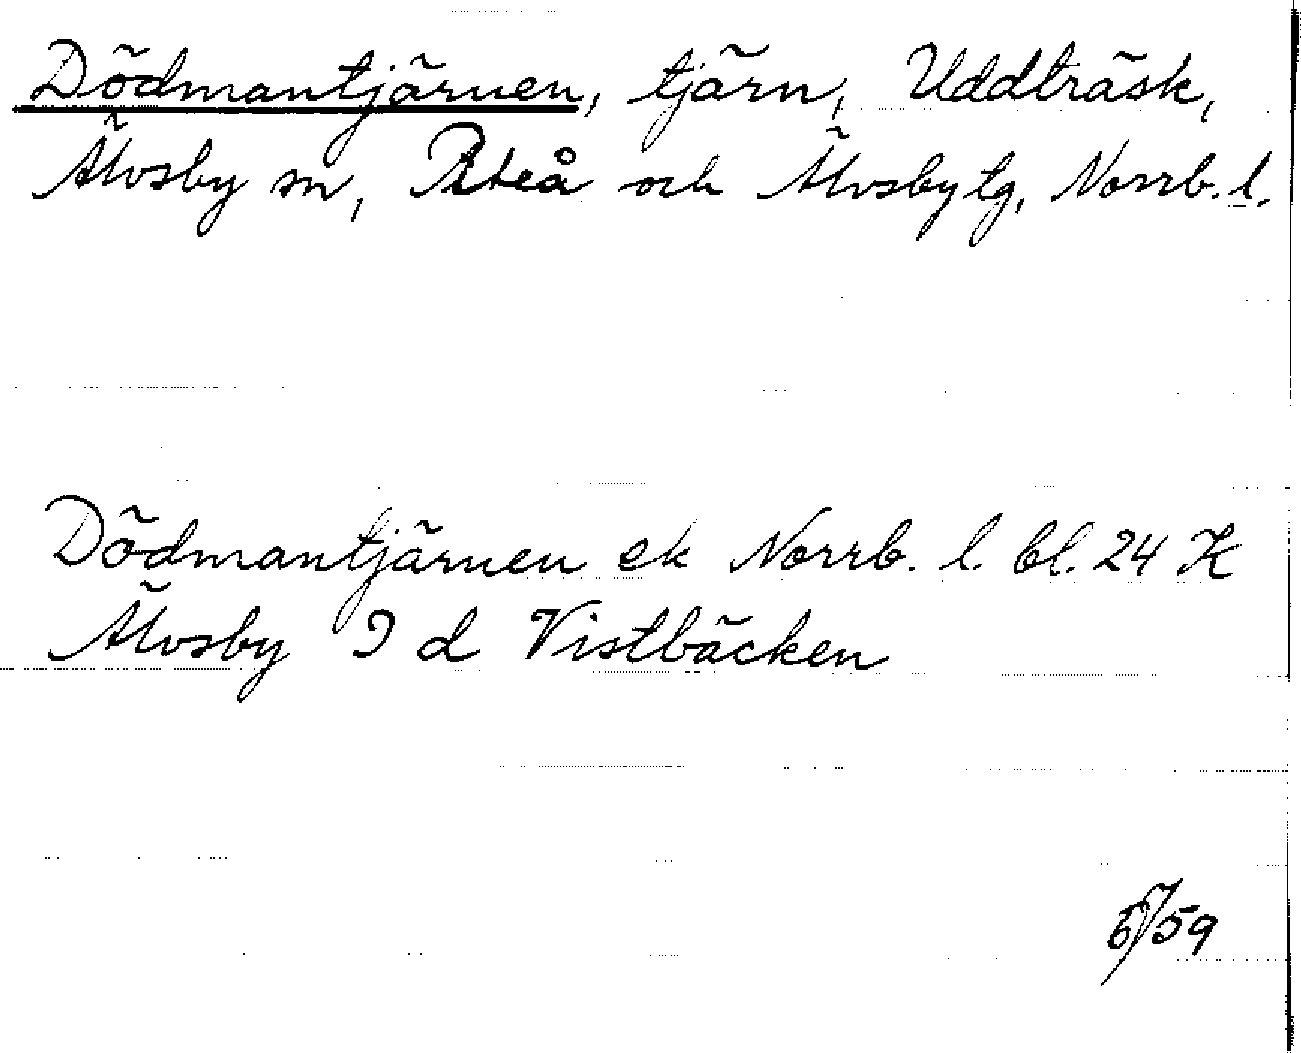 Dödmantjärnen, tjärn, Uddträsk,
Älvsby sn, Piteå och Älvsby tg, Norrb. l.
Dödmantjärnen ek Norrb. l. bl. 24 K
Älvsby 9 d Vistbäcken
59